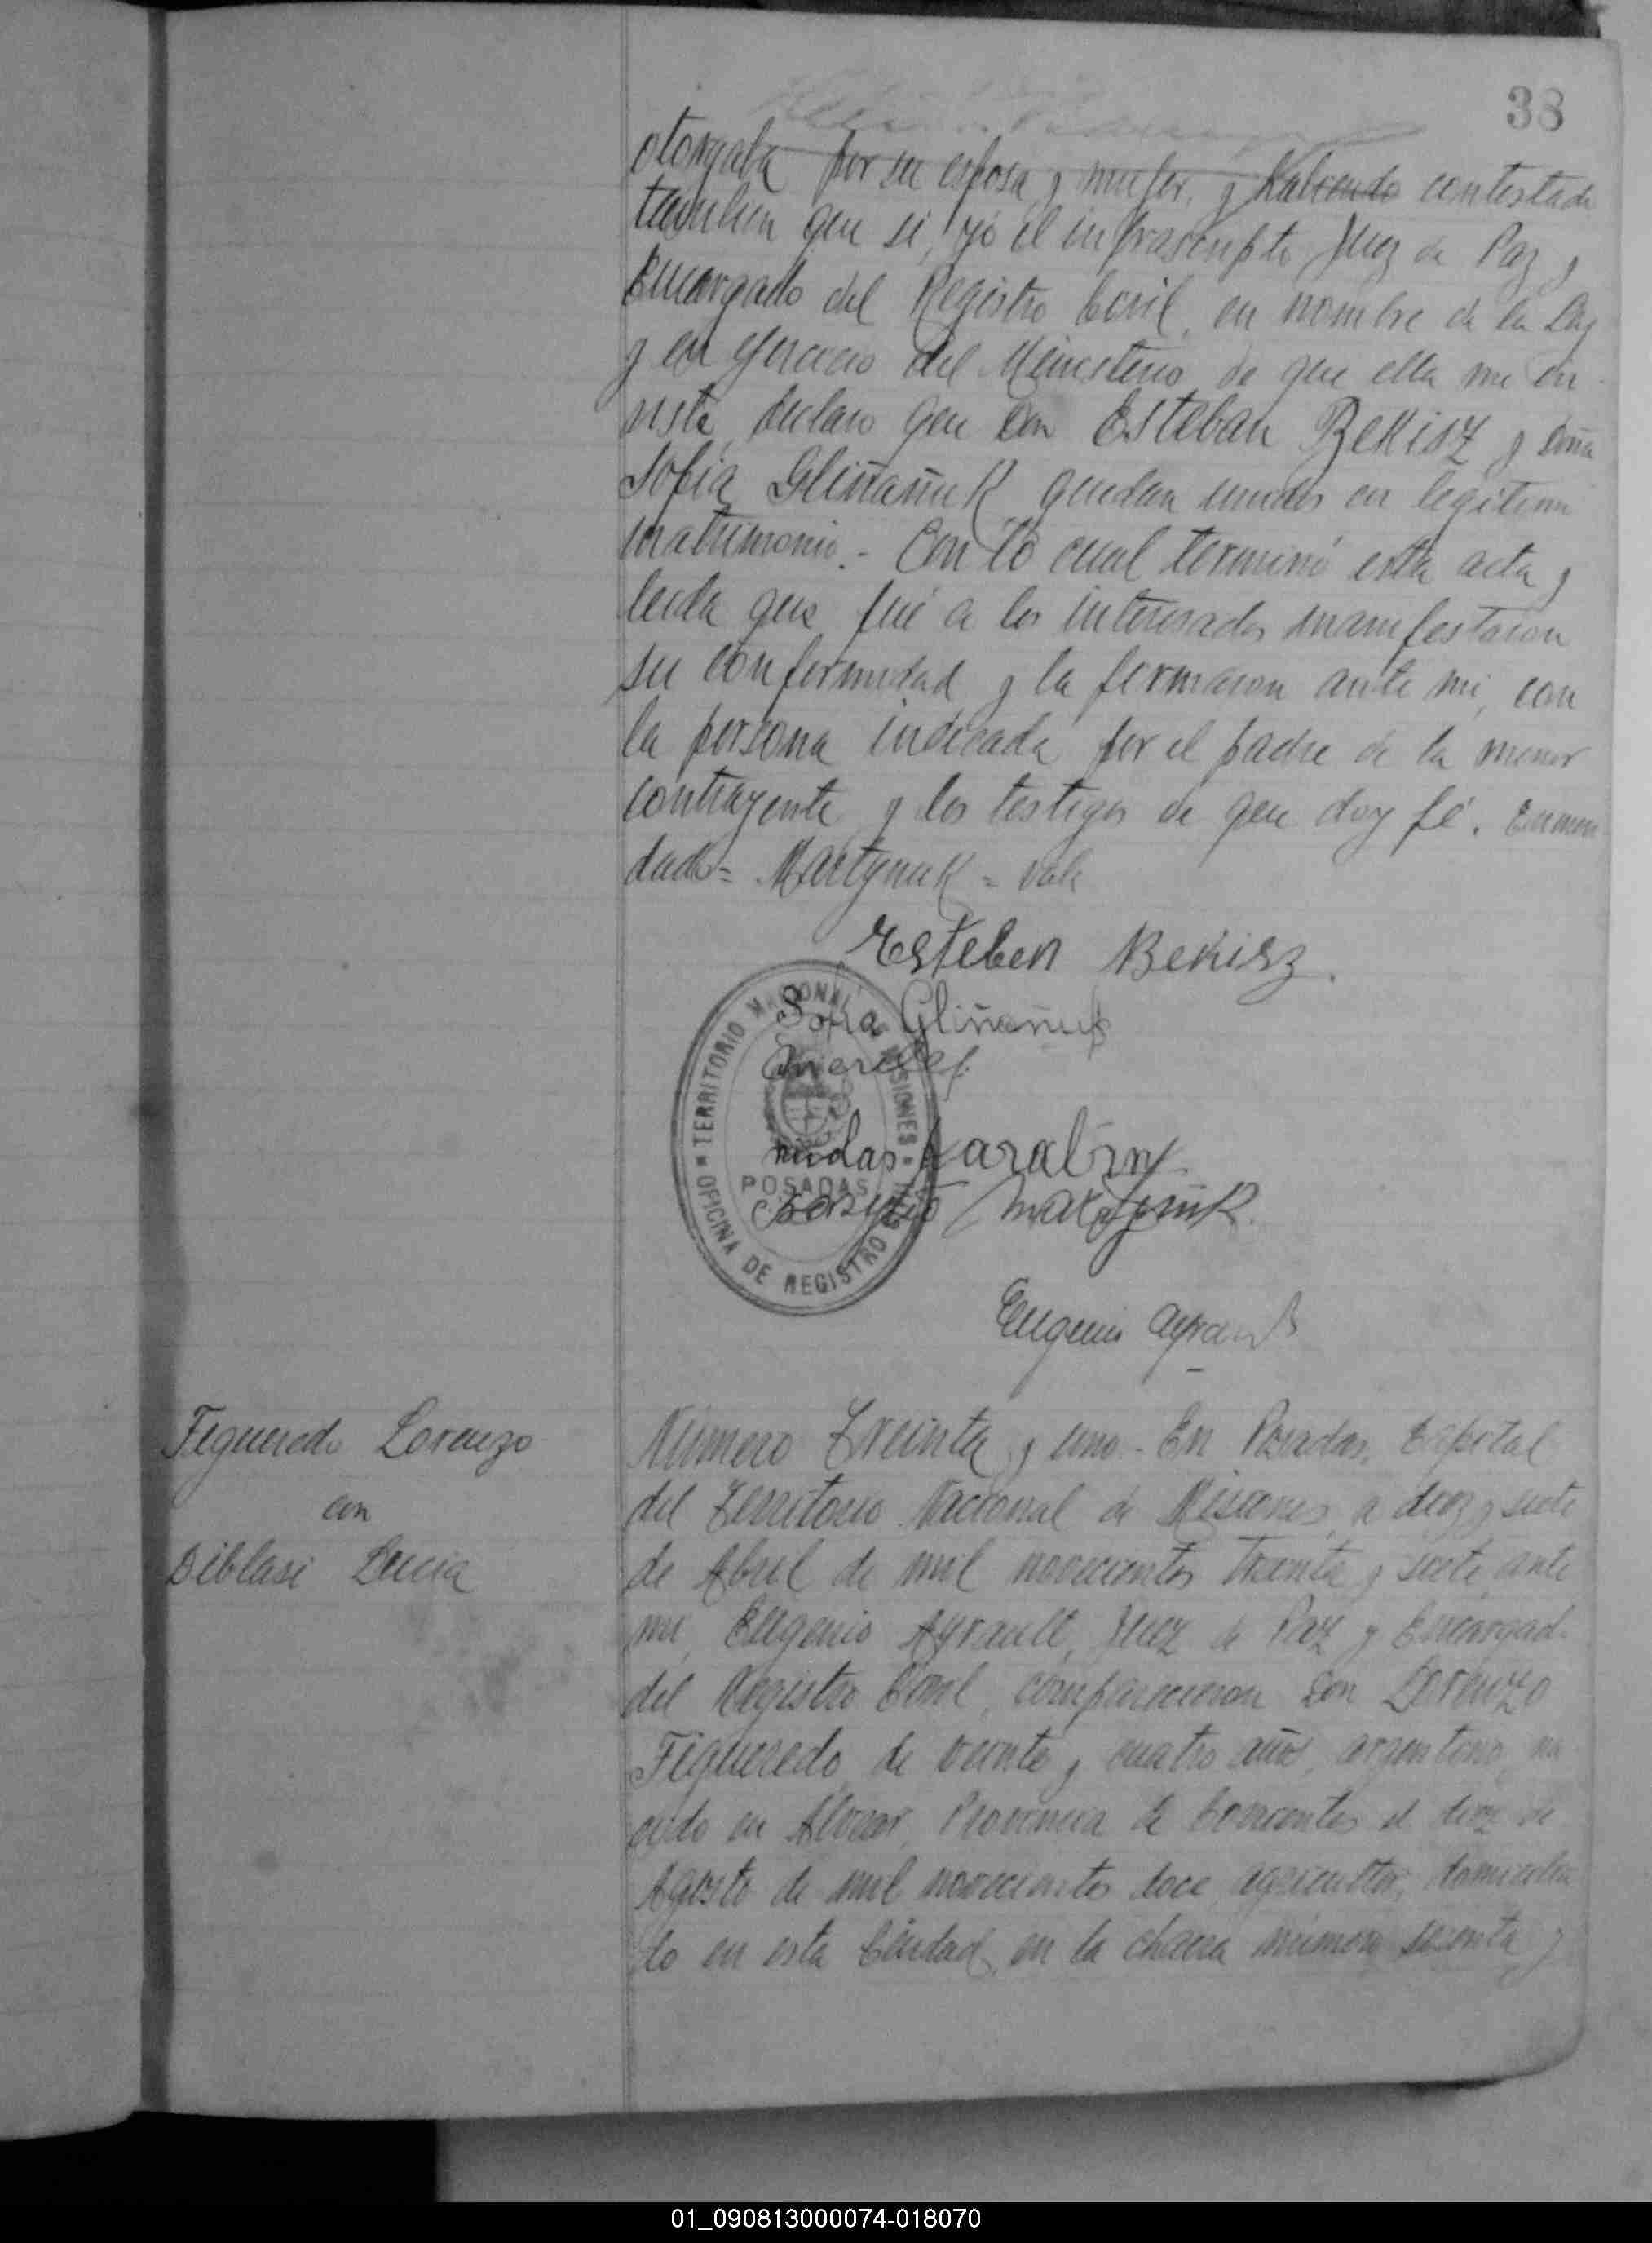 38
otorgaba por su esposa y mujer, y habiendo contestado
tambien que si, yo el infrascripto Juez de Paz y
Encargado del Registro Civil, en nombre de la Ley
y en ejercicio del Ministerio de que ella me in-
viste, declaro que Don Esteban Bekisz y doña
Sofia Gliñañuk quedan unidos en legitimo
matrimonio.- Con lo cual terminó esta acta y
leida que fué a los interesados manifestaron
su conformidad y la firmaron ante mi, con
la persona indicada por el padre de la menor
contrayente y los testigos de que doy fé. Enmen
dado= Martynuk = vale
Esteben Bekisz.
Sofia Gliñañuk
TERRITORIO NACIONAL DE MISIONES
POSADAS
OFICINA DE REGISTRO CIVIL
Eugenio Ayrault
Figueredo Lorenzo
con
Diblasi Lucia
Número Treinta y uno.- En Posadas, Capital
del Territorio Nacional de Misiones, a diez y siete
de Abril de mil novecientos treinta y siete, ante
mi, Eugenio Ayrault, Juez de Paz y Encargado
del Registro Civil, comparecieron Don Lorenzo
Figueredo, de veinte y cuatro años, argentino, na
cido en Alvear, Provincia de Corrientes el diez de
Agosto de mil novecientos doce, agricultor, domicilia
do en esta Ciudad, en la chacra número sesenta y
01_090813000074-018070